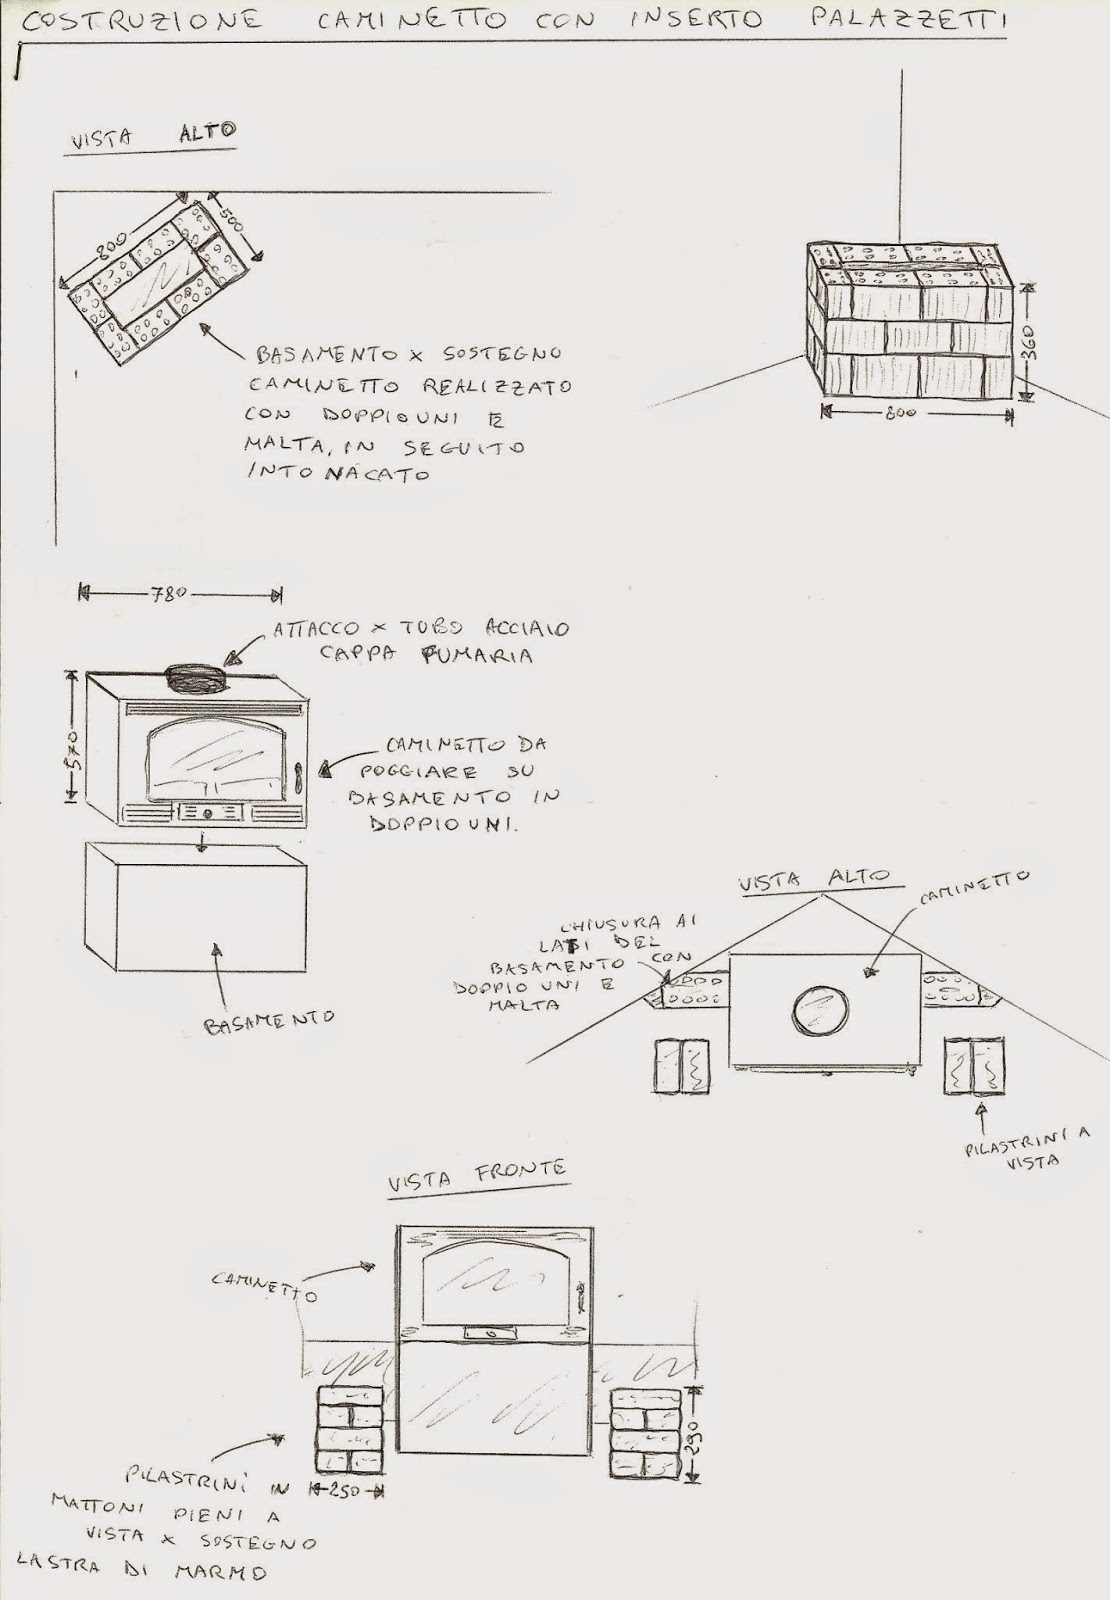 COSTRUZIONE CAMINETTO CON INSERTO PALAZZETTI
VISTA ALTO
800
500
BASAMENTO x SOSTEGNO
CAMINETTO REALIZZATO
CON DOPPIO UNI E
MALTA, IN SEGUITO
INTONACATO
360
800
780
ATTACCO x TUBO ACCIAIO
CAPPA FUMARIA
570
CAMINETTO DA
POGGIARE SU
BASAMENTO IN
DOPPIO UNI.
BASAMENTO
VISTA ALTO
CAMINETTO
CHIUSURA AI
LATI DEL
BASAMENTO CON
DOPPIO UNI E
MALTA
PILASTRINI A
VISTA
VISTA FRONTE
CAMINETTO
290
250
PILASTRINI IN
MATTONI PIENI A
VISTA x SOSTEGNO
LASTRA DI MARMO